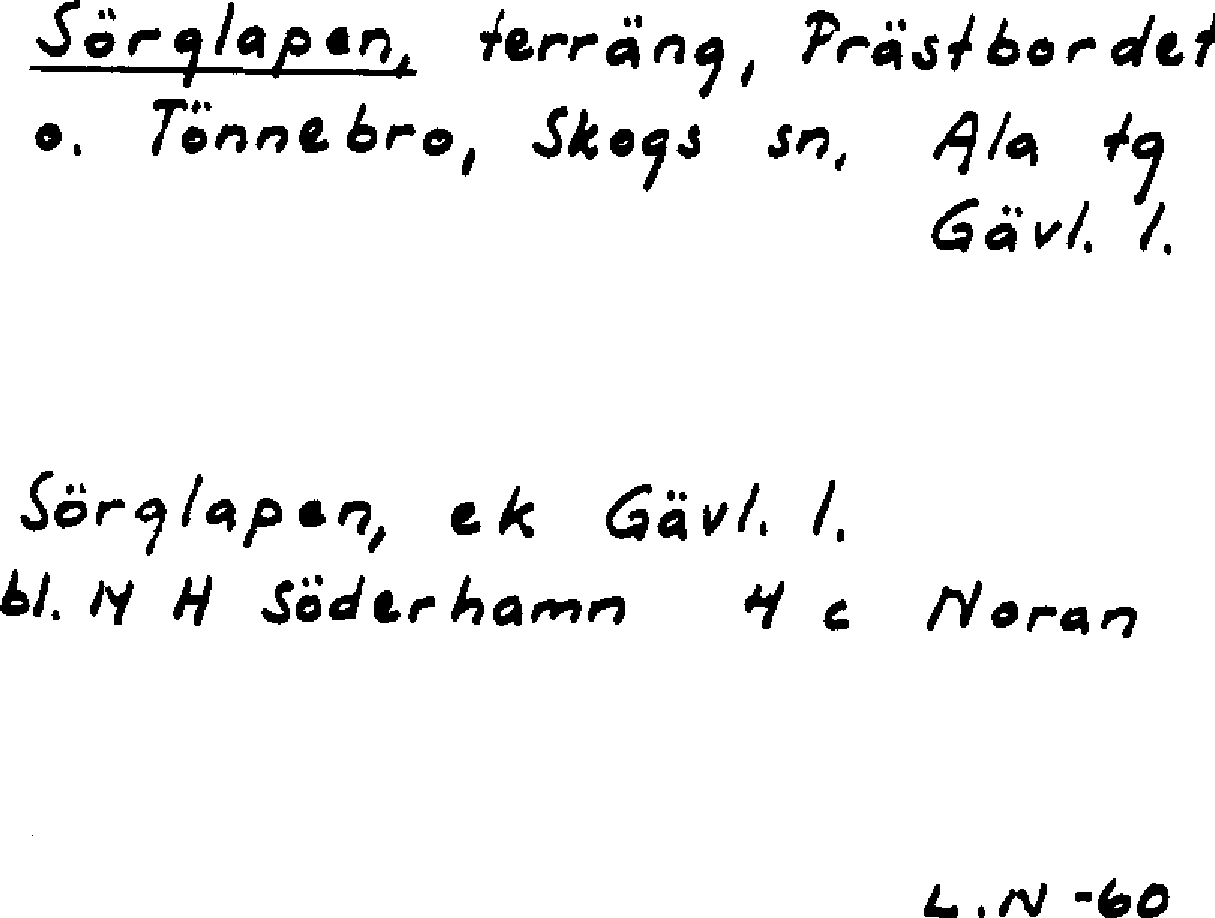 Sörglapen, terräng, Prästbordet
o. Tönnebro, Skogs sn, Ala tg
Gävl. l.
Sörglapen, ek Gävl. l.
bl. 14 H Söderhamn 4 c Noran
L.N -60